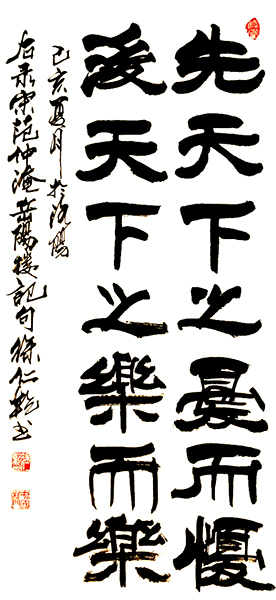 先天下之憂而懮
後天下之樂而樂
己亥夏月於沈陽
右录宋范仲淹岳陽樓記句徐仁书